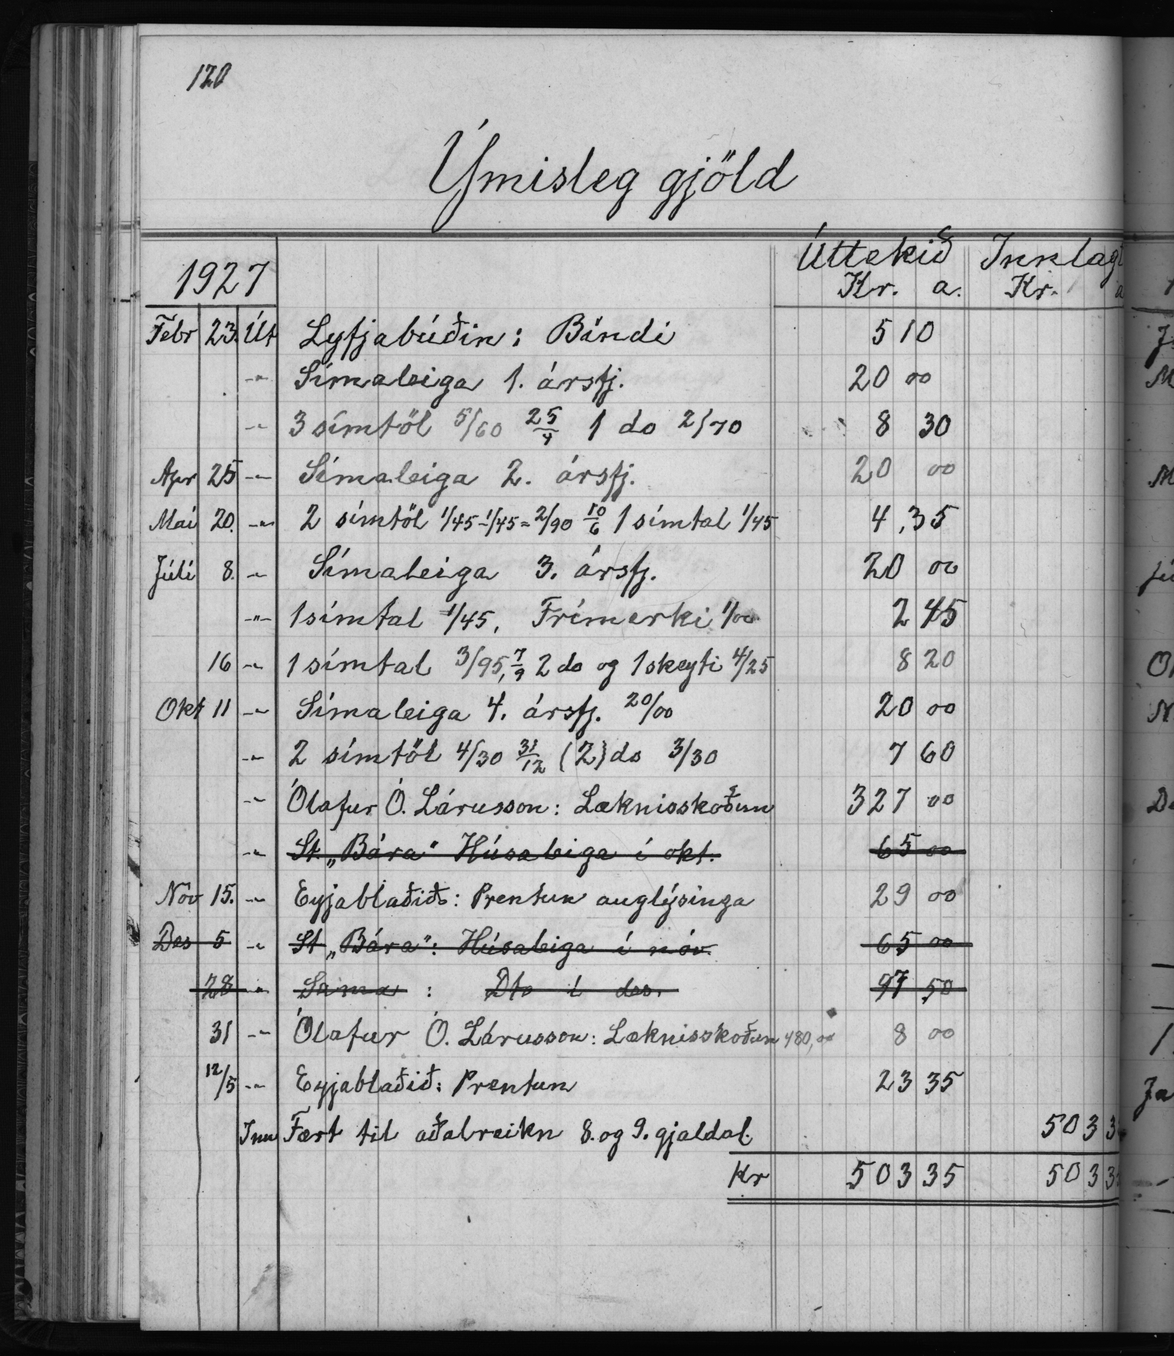 120
Ýmisleg gjöld
1927 Úttekið Innlagt
Kr. a. Kr. a
Febr 23. Út Lyfjabúðin: Bindi 5 10
-"- Símaleiga 1. ársfj. 20 00
-"- 3 símtöl 5/60 25/4 1 do 2/70 8 30
Apr 25 -"- Símaleiga 2. ársfj. 20 00
Mai 20. -"- 2 símtöl 1/45-1/45 = 2/90 10/6 1 símtal 1/45 4,35
Júlí 8. -"- Símaleiga 3. ársfj. 20 00
-"- 1 símtal 1/45, Frímerki 1/00 2 45
16 -"- 1 símtal 3/95, 7/9 2 do og 1 skeyti 4/25 8 20
Okt 11 -"- Símaleiga 4. ársfj. 20/00 20 00
-"- 2 símtöl 4/30 31/12 (2) do 3/30 7 60
-"- Ólafur Ó. Lárusson: Læknisskoðun 327 00
-"- St. "Bára" Húsaleiga í okt. 65 00
Nóv 15. -"- Eyjablaðið: Prentun auglýsinga 29 00
Des 5 -"- St "Bára": Húsaleiga í nóv. 65 00
28 -"- Sama : Dto í des. 97 50
31 -"- Ólafur Ó. Lárusson: Læknisskoðun 480,00 8 00
12/5 -"- Eyjablaðið: Prentun 23 35
Inn Fært til aðalreikn 8. og 9. gjaldal. 503 3
Kr 503 35 503 3